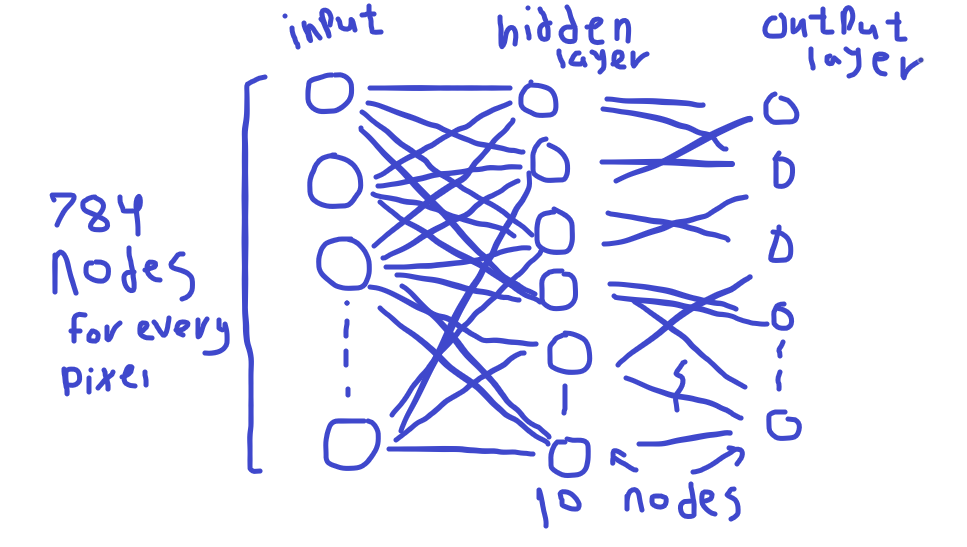 input
hidden
layer
output
layer
784
nodes
for every
pixel
10 nodes